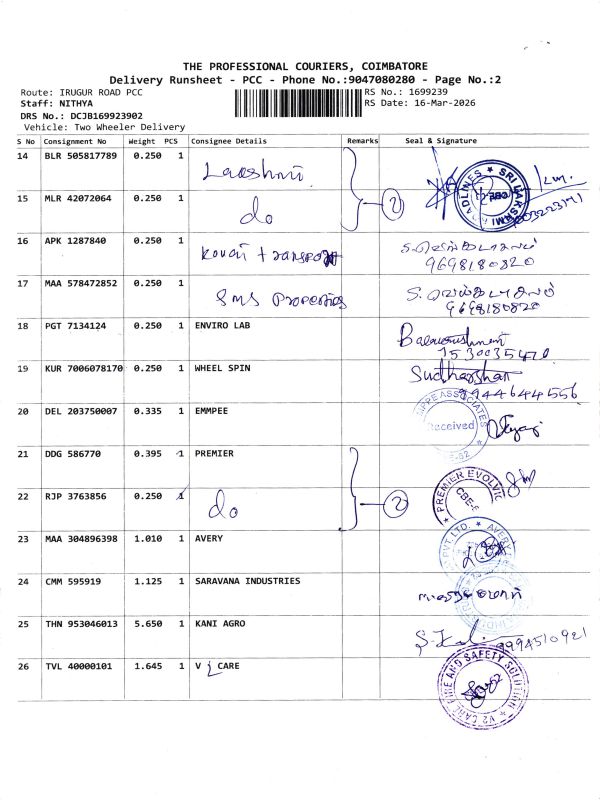 THE PROFESSIONAL COURIERS, COIMBATORE
Delivery Runsheet - PCC - Phone No.:9047080280 - Page No.:2
Route: IRUGUR ROAD PCC
RS No.: 1699239
Staff: NITHYA
RS Date: 16-Mar-2026
DRS No.: DCJB169923902
Vehicle: Two Wheeler Delivery
S No Consignment No Weight PCS Consignee Details Remarks Seal & Signature
14 BLR 505817789 0.250 1 Lakshmi
15 MLR 42072064 0.250 1 do 2 SRI LAKSHMI
16 APK 1287840 0.250 1 9698180820
17 MAA 578472852 0.250 1 SMS Properties 9698180820
18 PGT 7134124 0.250 1 ENVIRO LAB
19 KUR 7006078170 0.250 1 WHEEL SPIN Sudharshan
9944644556
20 DEL 203750007 0.335 1 EMMPEE ASSOCIATES Received
21 DDG 586770 0.395 1 PREMIER PREMIER EVOLVIC
22 RJP 3763856 0.250 1 do 2
23 MAA 304896398 1.010 1 AVERY PVT. LTD. AVERY
24 CMM 595919 1.125 1 SARAVANA INDUSTRIES
25 THN 953046013 5.650 1 KANI AGRO 9994510921
26 TVL 40000101 1.645 1 V CARE V2 CARE FIRE AND SAFETY SOLUTION